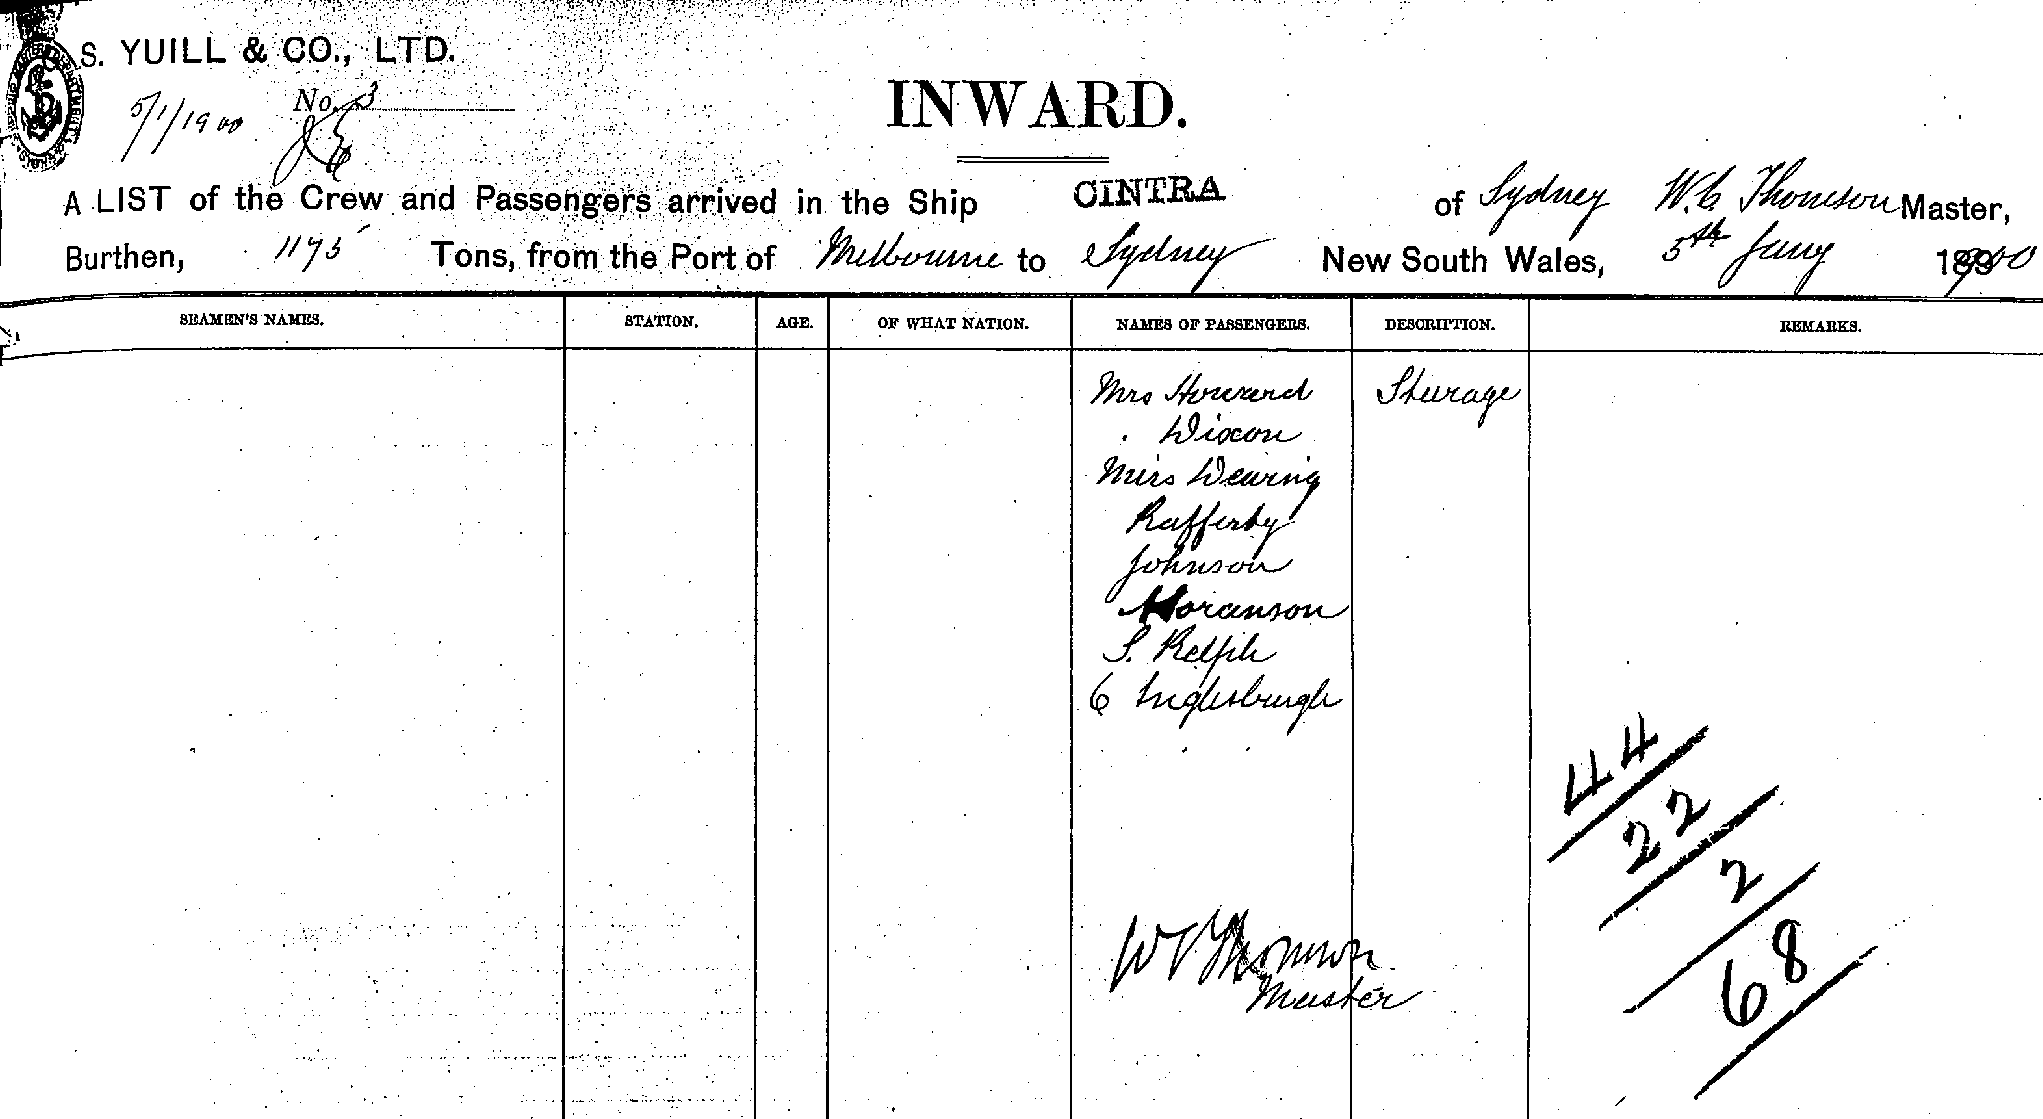 S. YUILL & CO., LTD.
5/1/1900 No. 3
INWARD.
A LIST of the Crew and Passengers arrived in the Ship CINTRA of Sydney W. C. Thomson Master,
Burthen, 1175 Tons, from the Port of Melbourne to Sydney New South Wales, 5th Jany 1900
SEAMEN'S NAMES. STATION. AGE. OF WHAT NATION. NAMES OF PASSENGERS. DESCRIPTION. REMARKS.
Mrs Howard Steerage
Dixon
Miss Dearing
Rafferty
Johnson
Moranson
S.
C
44
22
2
68
W C Thomson
Master